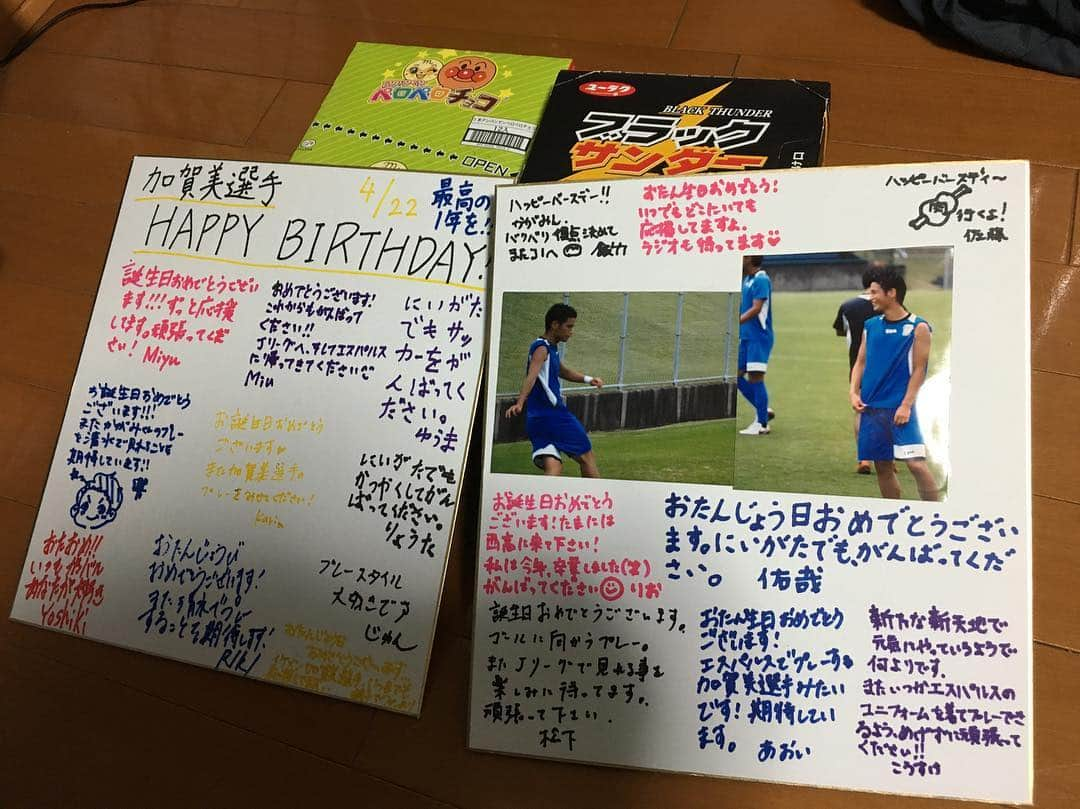 アンパンマン
ペロペロチョコ
12入
OPEN
ユーラク
BLACK THUNDER
ブラック
サンダー
加賀美選手
4/22
最高の
1年を!!
HAPPY BIRTHDAY!
誕生日おめでとうござい
ます!!!ずっと応援
してます。頑張ってくだ
さい! Miyu
おめでとうございます!
これからもがんばって
ください!!
Jリーグへ、そしてエスパルス
に帰ってきてください
Miu
にいがた
でもサッ
カーをが
んばってく
ださい。
ゆうま
お誕生日おめでとう
ございます!!!
またかがみせんしゅのプレー
を清水で見れることを
期待しています!!
お誕生日おめでとう
ございます
また加賀美選手の
プレーをみせてください!
Karin
にいがたでも
かつやくしてがん
ばってください。
りょうた
おたおめ!!
あなたが大好き
Yoshiki
おたんじょうび
おめでとうございます!
することを期待します!
RIKI
プレースタイル
大好きです
じゅん
ハッピーバースデー!!
かがみん。
バリバリ得点決めて
おたん生日おめでとう!
いつでもどこにいても
応援してますよ。
ラジオも待ってます♡
ハッピーバースディ〜
肉行くよ!
佐藤
お誕生日おめでとう
ございます!たまには
西高に来て下さい!
私は今年、卒業しました(笑)
がんばってください りお
おたんじょう日おめでとうござい
ます。にいがたでも、がんばってくだ
さい。 佑哉
誕生日おめでとうございます。
ゴールに向かうプレー。
またJリーグで見れる事を
楽しみに待ってます。
頑張って下さい。
松下
おたん生日おめでとう
ございます!
エスパルスでプレーする
加賀美選手みたい
です!期待してい
ます。 あおい
新たな新天地で
元気にやっているようで
何よりです。
またいつかエスパルスの
ユニフォームを着てプレーでき
るよう、めげずに頑張って
ください!!
こうすけ